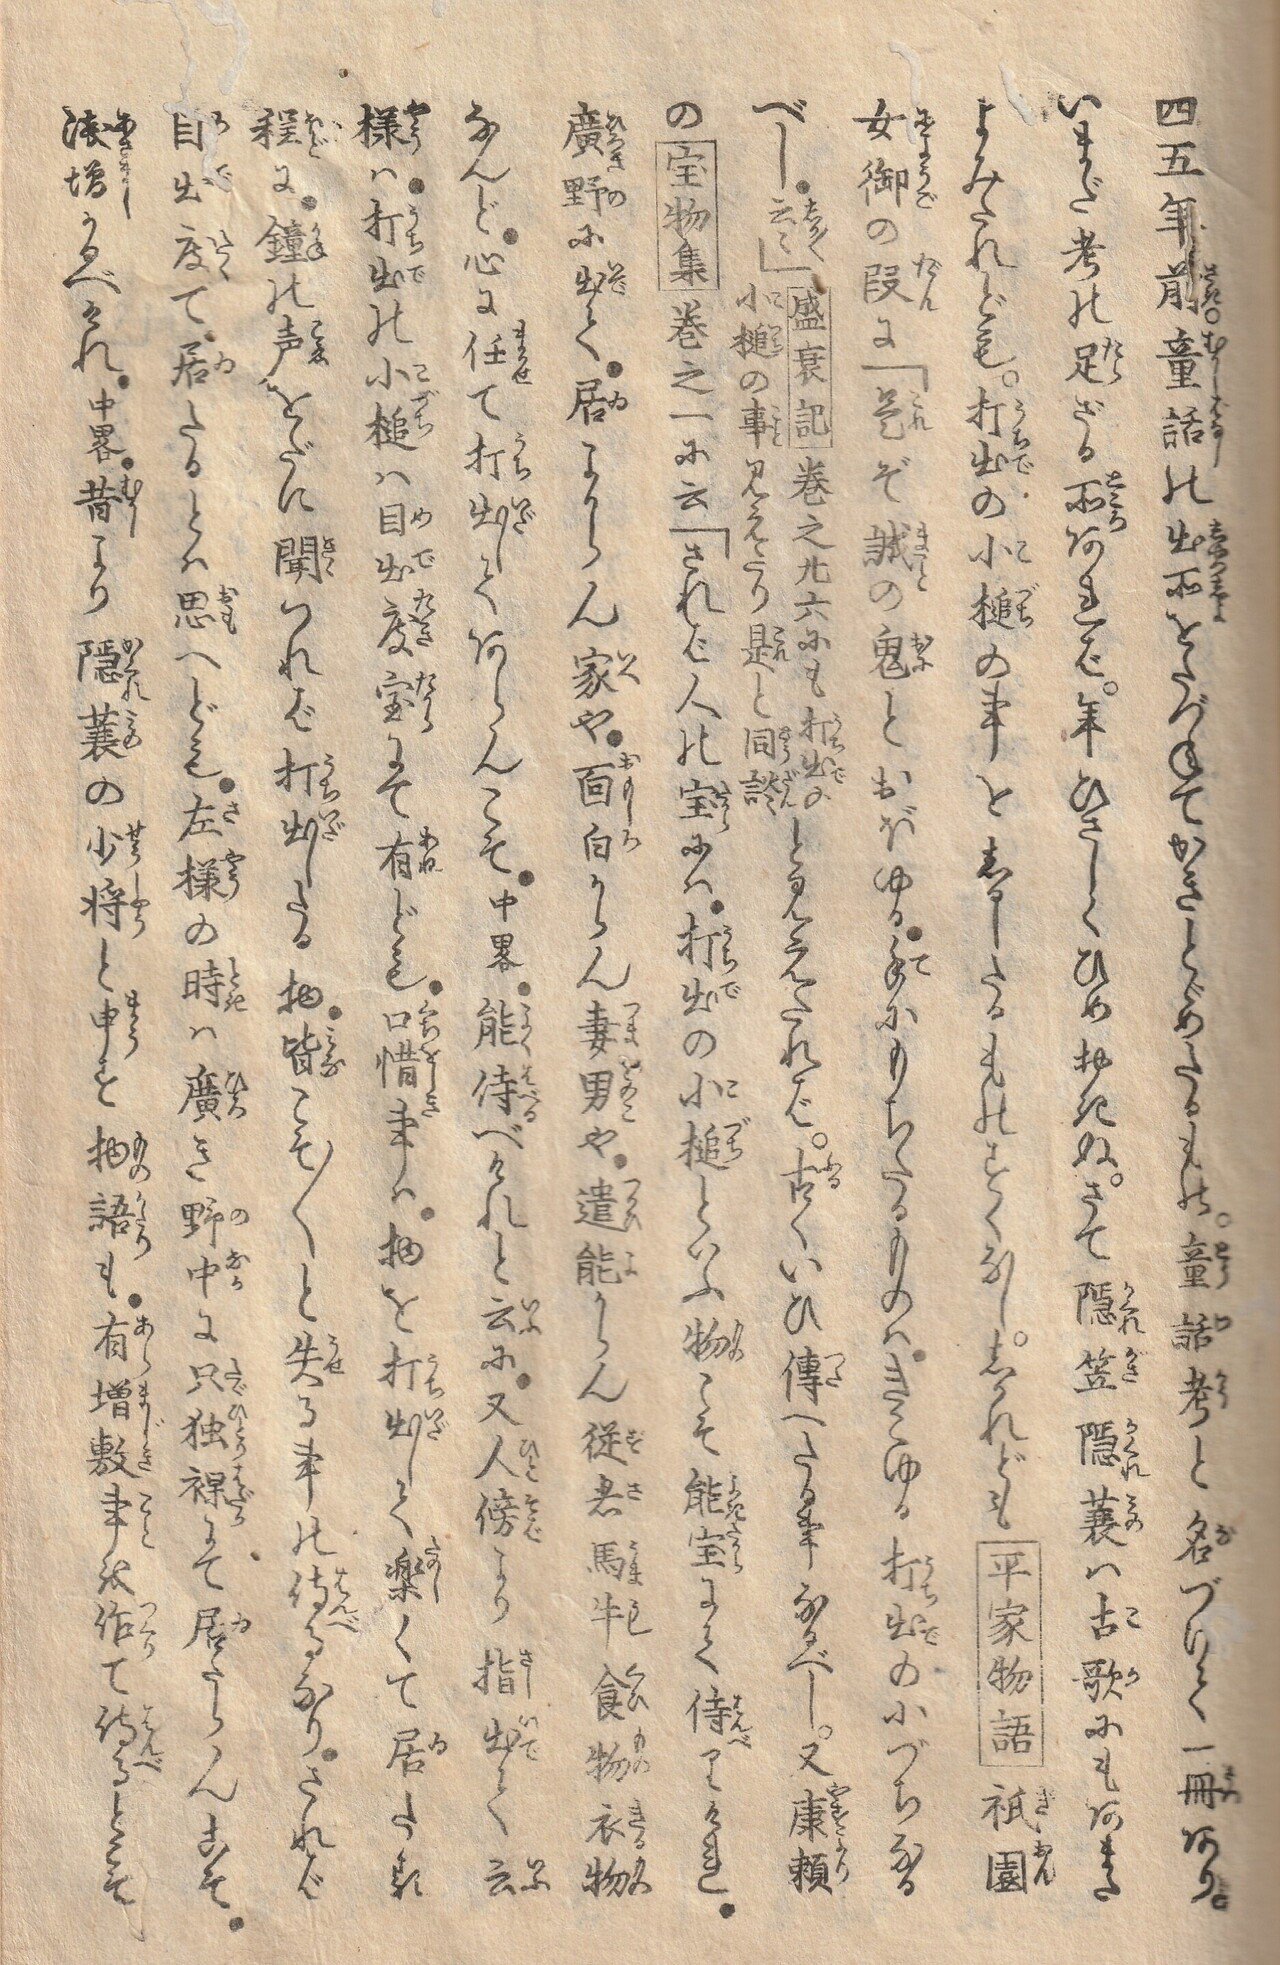 四五年前童話の出所をたづねてかきとゞめたるもの。童話考と名づけて一冊あり。
いまだ考の足ざる所あれば。年ひさしくひめおきぬ。さて隠笠隠蓑ハ古歌にもあまた
よみたれども。打出の小槌の事をしるしたるものすくなし。しかれども平家物語祇園
女御の段に「是ぞ誠の鬼とおぼゆる●手にもちたるものハきこゆる打出の小づちなる
べし●云々」盛衰記巻之廿六にも打出の小槌の事見えたり是と同談と見えたれば。古くいひ傳へたる事なるべし。又康頼
の宝物集巻之一に云「されば人の宝にハ●打出の小槌といふ物こそ能宝にて侍りけれ●
廣野に出て●居よからん家や●面白からん妻男や●遣能からん従者馬牛食物衣物
なんど●心に任て打出してあらんこそ●中畧●能侍べけれと云に●又人傍より指出て云
様ハ●打出の小槌ハ目出度宝にて有ども●口惜事ハ●物を打出して楽くて居たる
程に●鐘の声をだに聞つれば打出したる物●皆こそ〳〵と失る事の侍るなり●されば
目出度て●居たるとハ思へども●左様の時ハ廣き野中に只独裸にて居たらんこそ●
浅増かるべけれ●中畧●昔より隠蓑の少将と申す物語も●有増敷事を作て侍るとこそ